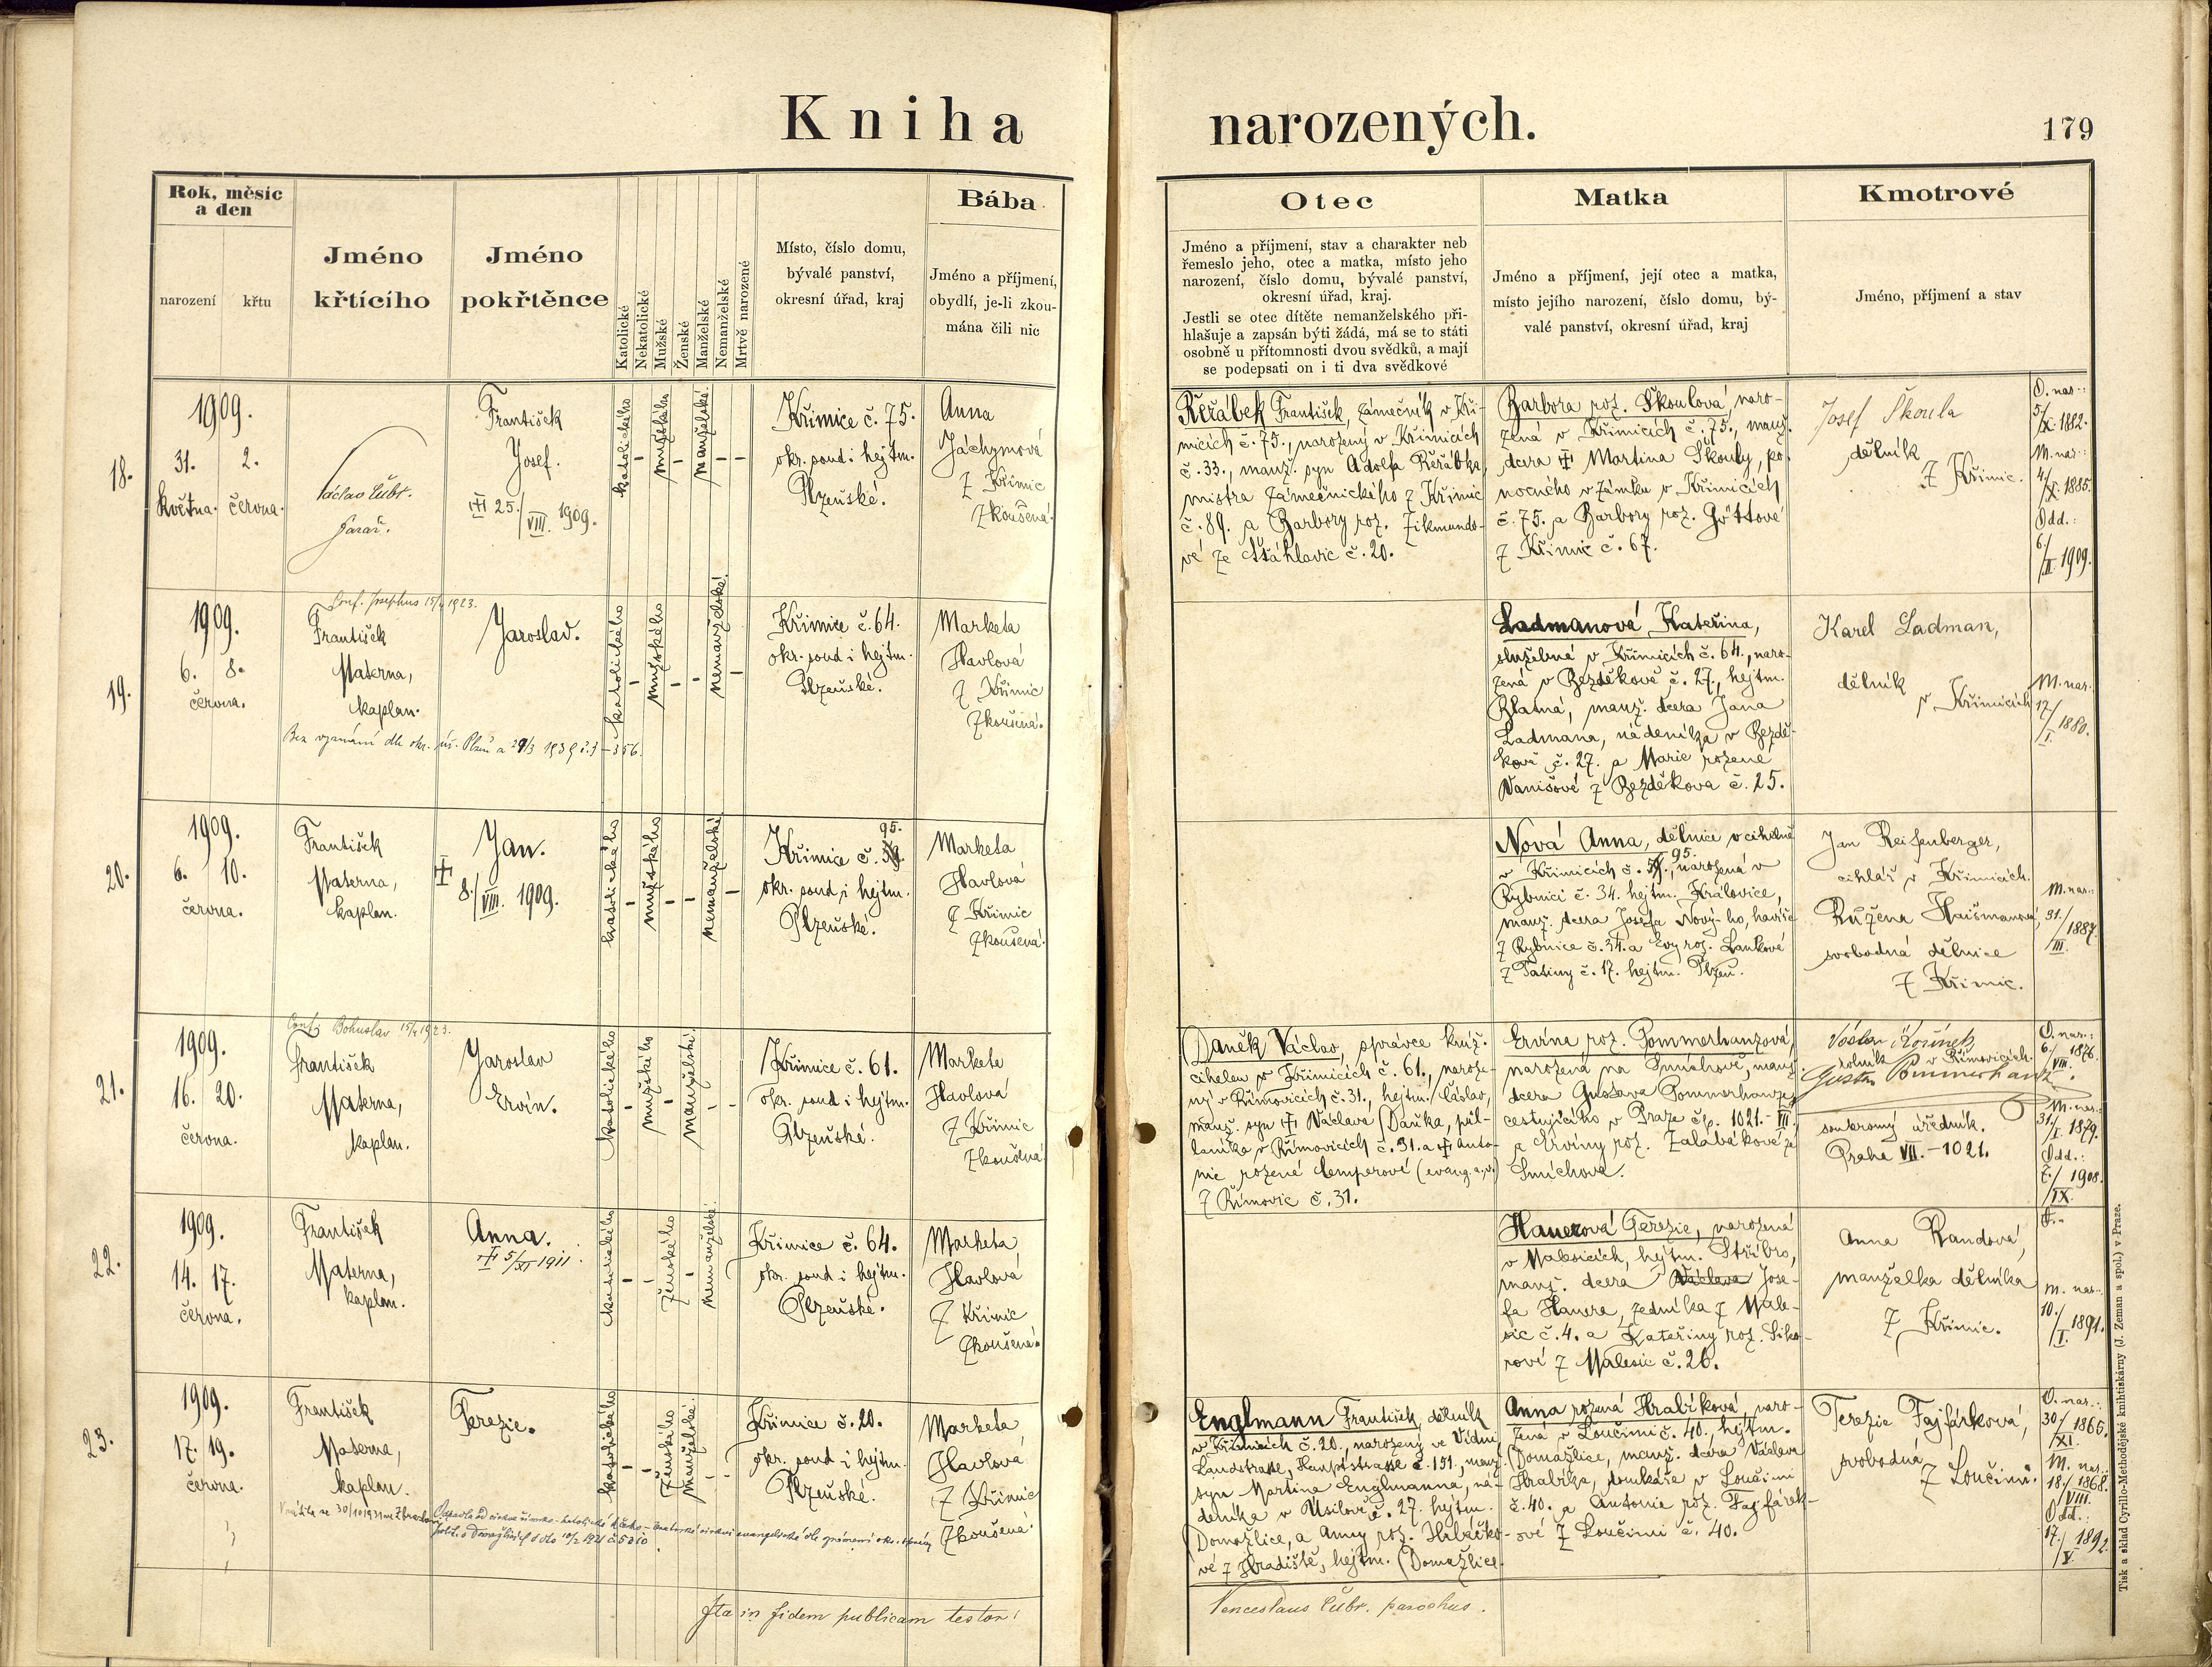 Kniha narozených.
179
Rok, měsíc
a den
narození
křtu
Jméno
křtícího
Jméno
pokřtěnce
Katolické
Nekatolické
Mužské
Ženské
Manželské
Nemanželské
Mrtvě narozené
Místo, číslo domu,
bývalé panství,
okresní úřad, kraj
Bába
Jméno a příjmení,
obydlí, je-li zkou-
mána čili nic
Otec
Jméno a příjmení, stav a charakter neb
řemeslo jeho, otec a matka, místo jeho
narození, číslo domu, bývalé panství,
okresní úřad, kraj.
Jestli se otec dítěte nemanželského při-
hlašuje a zapsán býti žádá, má se to státi
osobně u přítomnosti dvou svědků, a mají
se podepsati on i ti dva svědkové
Matka
Jméno a příjmení, její otec a matka,
místo jejího narození, číslo domu, bý-
valé panství, okresní úřad, kraj
Kmotrové
Jméno, příjmení a stav
18.
1909.
31. 2.
května. června.
Václav Čubr.
farář.
František
Josef.
25./VIII. 1909.
katolického
mužského
manželské
Křimice č. 75.
okr. soud i hejtm.
Plzeňské.
Anna
Jáchymová
z Křimic
zkoušená.
Řeřábek František, zámečník v Kři-
micích č. 75., narozený v Křimicích
č. 33., manž. syn Adolfa Řeřábka,
mistra zámečnického z Křimic
č. 89. a Barbory roz. Zikmundo-
vé ze Šťáhlavic č. 20.
Barbora roz. Škoulová, naro-
zená v Křimicích č. 75., manž.
dcera Martina Škouly, po-
nocného v zámku v Křimicích
č. 75. a Barbory roz. Göttové
z Křimic č. 67.
Josef Škoula
dělník
z Křimic.
O. nar.:
5/X. 1882.
M. nar.:
4/X. 1885.
Odd.:
6/II. 1909.
19.
1909.
6. 8.
června.
Conf. Josephus 15/4 1923.
František
Materna,
kaplan.
Jaroslav.
katolického
mužského
nemanželské
Křimice č. 64.
okr. soud i hejtm.
Plzeňské.
Marketa
Havlová
z Křimic
zkoušená.
Bez vyznání dle okr. úř. Plzeň
Ladmanová Kateřina,
služebná v Křimicích č. 64., naro-
zená v Bezděkově č. 27., hejtm.
Blatná, manž. dcera Jana
Ladmana, nádeníka v Bezdě-
kově č. 27. a Marie rozené
Vanišové z Bezděkova č. 25.
Karel Ladman,
dělník
v Křimicích
M. nar.
17/I. 1880.
20.
1909.
6. 10.
června.
František
Materna,
kaplan.
Jan.
8./VIII. 1909.
katolického
mužského
nemanželské
95.
Křimice č.
okr. soud i hejtm.
Plzeňské.
Marketa
Havlová
z Křimic
zkoušená.
Nová Anna, dělnice v cihelně
v Křimicích č. 95., narozená v
Rybnici č. 34. hejtm. Kralovice,
manž. dcera Josefa Nový-ho, havíře
z Rybnice č. 34. a Evy roz. Lankové
z Tatiny č. 17. hejtm. Plzeň.
Jan Reifenberger,
cihlář v Křimicích.
Růžena
svobodná dělnice
z Křimic.
M. nar.:
31./III. 1887.
21.
1909.
16. 20.
června.
Conf. Bohuslav 15/4 1923.
František
Materna,
kaplan.
Jaroslav
Ervín.
katolického
mužského
manželské
Křimice č. 61.
okr. soud i hejtm.
Plzeňské.
Marketa
Havlová
z Křimic
zkoušená.
Daněk Václav, správce kníž.
cihelen v Křimicích č. 61., naroze-
ný v Římovicích č. 31., hejtm. Čáslav,
manž. syn Václava Daňka, půl-
láníka v Římovicích č. 31. a Anto-
nie rozené Čemperové (evang. a. v.)
z Římovic č. 31.
Ervína roz. Pommerhanzová,
narozená na Smíchově, manž.
dcera Gustava Pommerhanze,
cestujícího v Praze čp. 1021.-VII.
a Ervíny roz. Zalabákové ze
Smíchova.
rolník v Římovicích.
Gustav Pommerhanz
soukromý úředník.
Praha VII.-1021.
O. nar.:
6./VIII. 1876.
M. nar.:
31./I. 1879.
Odd.:
7./IX. 1908.
22.
1909.
14. 17.
června.
František
Materna,
kaplan.
Anna.
5/XI 1911.
katolického
ženského
nemanželské
Křimice č. 64.
okr. soud i hejtm.
Plzeňské.
Marketa
Havlová
z Křimic
zkoušená.
Hauerová Terezie, narozená
v Malesicích, hejtm. Stříbro,
manž. dcera Václava Jose-
fa Hauera, zedníka z Male-
sic č. 4. a Kateřiny roz. Siko-
rové z Malesic č. 26.
Anna Randová,
manželka dělníka
z Křimic.
M. nar.
10./I. 1891.
23.
1909.
17. 19.
června.
František
Materna,
kaplan.
Terezie.
katolického
ženského
manželské
Křimice č. 20.
okr. soud i hejtm.
Plzeňské.
Marketa
Havlová
z Křimic
zkoušená.
Englmann František, dělník
v Křimicích č. 20., narozený ve Vídni
Landstrasse, Hauptstrasse č. 151., manž.
syn Martina Englmanna, ná-
deníka v Úsilově č. 27. hejtm.
Domažlice, a Anny roz. Hrbáčko-
vé z Hradiště, hejtm. Domažlice.
Anna rozená Hrabíková, naro-
zená v Loučimi č. 40., hejtm.
Domažlice, manž. dcera Václava
Hrabíka, domkáře v Loučimi
č. 40. a Antonie roz. Fajfárek-
ové z Loučimi č. 40.
Terezie Fajfárková,
svobodná
z Loučimi.
O. nar.:
30/XI. 1865.
M. nar.
18./VIII. 1868.
Odd.:
17./V. 1892.
Ita in fidem publicam testor:
Venceslaus Čubr. parochus.
Tisk a sklad Cyrillo-Methodějské knihtiskárny (J. Zeman a spol.) v Praze.